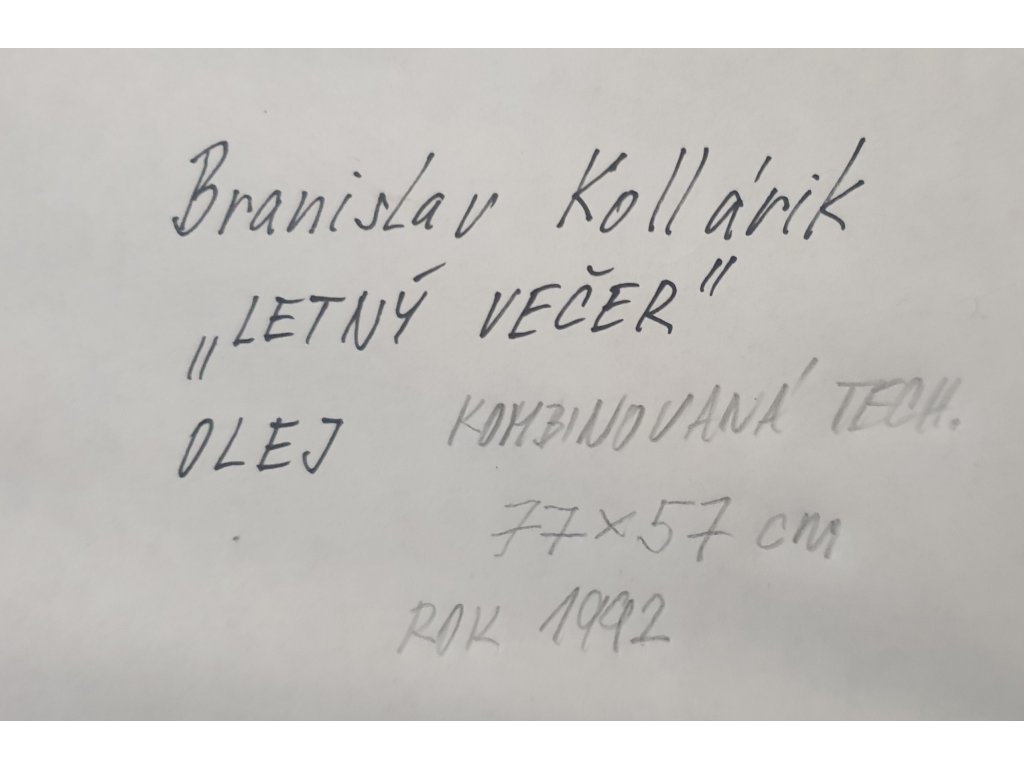 Branislav Kollárik
„LETNÝ VEČER"
OLEJ KOMBINOVANÁ TECH.
77×57 cm
ROK 1992